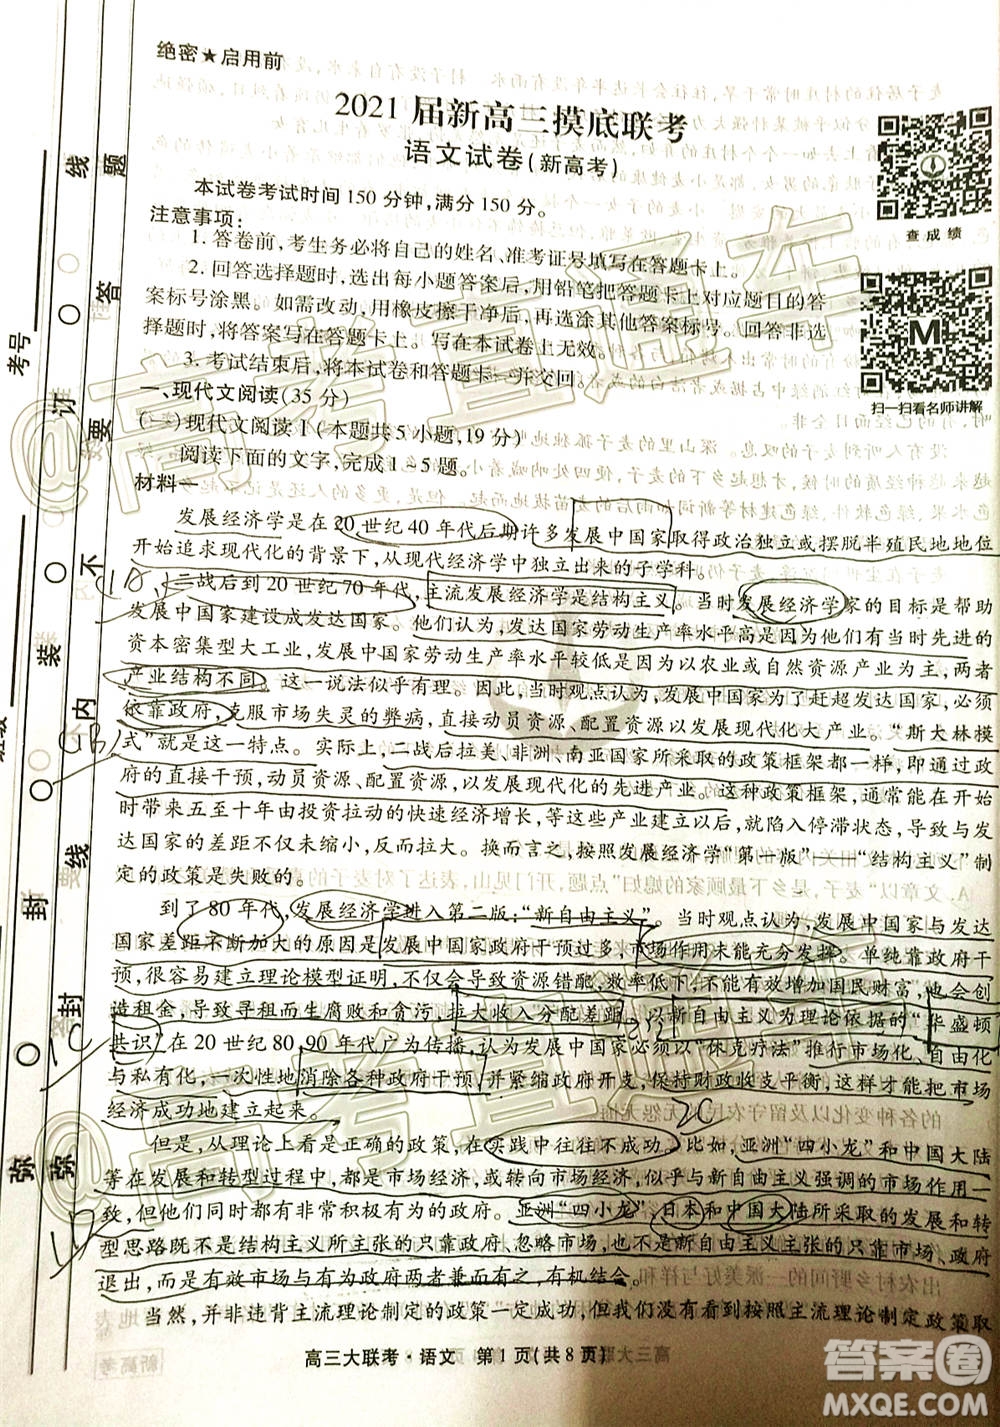 绝密★启用前
2021届新高三摸底联考
语文试卷(新高考)
本试卷考试时间150分钟,满分150分。
查成绩
注意事项:
1. 答卷前,考生务必将自己的姓名、准考证号填写在答题卡上。
2. 回答选择题时,选出每小题答案后,用铅笔把答题卡上对应题目的答
案标号涂黑。如需改动,用橡皮擦干净后,再选涂其他答案标号。回答非选
择题时,将答案写在答题卡上。写在本试卷上无效。
3. 考试结束后,将本试卷和答题卡一并交回。
扫一扫看名师讲解
一、现代文阅读(35分)
(一)现代文阅读Ⅰ(本题共5小题,19分)
阅读下面的文字,完成1~5题。
材料一
发展经济学是在20世纪40年代后期许多发展中国家取得政治独立或摆脱半殖民地地位
开始追求现代化的背景下,从现代经济学中独立出来的子学科。
二战后到20世纪70年代,主流发展经济学是结构主义。当时发展经济学家的目标是帮助
发展中国家建设成发达国家。他们认为,发达国家劳动生产率水平高是因为他们有当时先进的
资本密集型大工业,发展中国家劳动生产率水平较低是因为以农业或自然资源产业为主,两者
产业结构不同。这一说法似乎有理。因此,当时的观点认为,发展中国家为了赶超发达国家,必须
依靠政府,克服市场失灵的弊病,直接动员资源、配置资源以发展现代化大产业。“斯大林模
式”就是这一特点。实际上,二战后拉美、非洲、南亚国家所采取的政策框架都一样,即以政
府的直接干预,动员资源、配置资源,以发展现代化的先进产业。这种政策框架,通常能在开始
时带来五至十年由投资拉动的快速经济增长,等这些产业建立起来后,就陷入停滞状态,导致与发
达国家的差距不仅未缩小,反而扩大。换而言之,按照发展经济学“第一版”——“结构主义”制
定的政策是失败的。
到了80年代,发展经济学进入第二版:“新自由主义”。当时观点认为,发展中国家与发达
国家差距不断加大的原因是发展中国家政府干预过多,市场作用未能充分发挥。单纯靠政府干
预,很容易建立理论模型证明,不仅会导致资源错配,无法有效地增加国民财富,也会创
造租金,导致寻租而生腐败和贪污,拉大收入分配差距。以新自由主义为理论依据的“华盛顿
共识”在20世纪80、90年代广为传播,认为发展中国家必须以“休克疗法”推行市场化、自由化
与私有化,一次性地消除各种政府干预,并紧缩政府开支,保持财政收支平衡,这样才能把市场
经济成功地建立起来。
但是,从理论上看是正确的政策,在实践中往往不成功。比如,亚洲“四小龙”和中国大陆
等在发展和转型过程中,都是市场经济或转向市场经济,似乎与新自由主义强调的市场作用一
致,但他们同时都有非常积极有为的政府。亚洲“四小龙”、日本和中国大陆所采取的发展和转
型思路既不是结构主义所主张的只靠政府、忽略市场,也不是新自由主义主张的只靠市场、政府
退出,而是有效市场与有为政府两者兼而有之、有机结合。
当然,并非违背主流理论制定的政策一定成功,但我们没有看到按照主流理论制定政策取
高三大联考·语文 第1页(共8页)
考号
弥 封 装 订 线
线 封 内 不 要 答 题
@高考直通车
答案圈
MXQE.COM